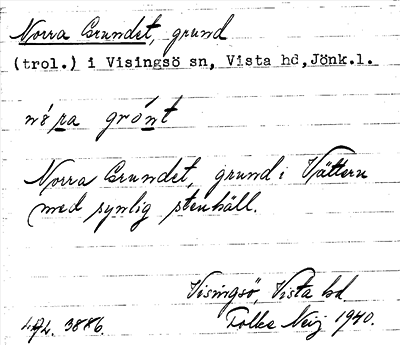 Norra Grundet, grund
(trol.) i Visingsö sn, Vista hd,Jönk.l.
Norra Grundet, grund i Vättern
med synlig stenhäll.
Visingsö, Vista hd
3886. Folke Neij 1940.